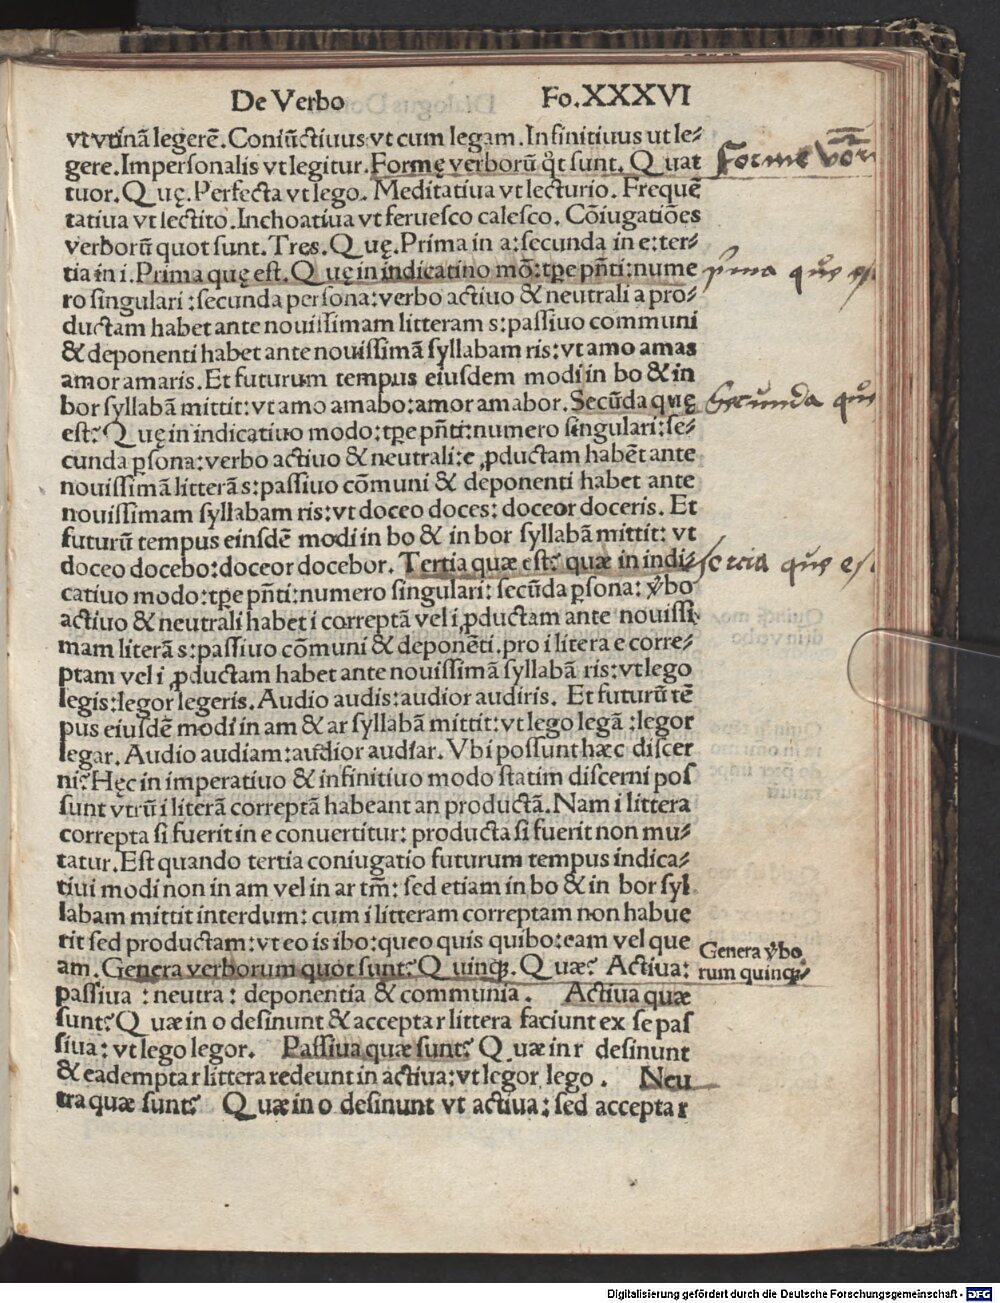 De Verbo Fo.XXXVI
vt vtinā legerē. Coniūctiuus vt cum legam. Infinitiuus ut le⸗
gere. Impersonalis vt legitur. Formę verborū qͦt sunt. Quat
tuor. Quę. Perfecta vt lego. Meditatiua vt lecturio. Frequē
tatiua vt lectito. Inchoatiua vt feruesco calesco. Cōiugatiōes
verborū quot sunt. Tres. Quę. Prima in a: secunda in e: ter⸗
tia in i. Prima quę est. Quę in indicatino mō: tꝑe pn̄ti: nume
ro singulari: secunda persona: verbo actiuo & neutrali a pro⸗
ductam habet ante nouissimam litteram s: passiuo communi
& deponenti habet ante nouissimā syllabam ris: vt amo amas
amor amaris. Et futurum tempus eiusdem modi in bo & in
bor syllabā mittit: vt amo amabo: amor amabor. Secūda quę
est? Quę in indicatiuo modo: tꝑe pn̄ti: numero singulari: se⸗
cunda ꝑsona: verbo actiuo & neutrali: e ꝓductam habēt ante
nouissimā litterā s: passiuo cōmuni & deponenti habet ante
nouissimam syllabam ris: vt doceo doces: doceor doceris. Et
futurū tempus einsdē modi in bo & in bor syllabā mittit: vt
doceo docebo: doceor docebor. Tertia quæ est? quæ in indi⸗
catiuo modo: tꝑe pn̄ti: numero singulari: secūda ꝑsona: v̓bo
actiuo & neutrali habet i correptā vel i ꝓductam ante nouissi
mam literā s: passiuo cōmuni & deponēti. pro i litera e corre⸗
ptam vel i ꝓductam habet ante nouissimā syllabā ris: vt lego
legis: legor legeris. Audio audis: audior audiris. Et futurū tē
pus eiusdē modi in am & ar syllabā mittit: vt lego legā: legor
legar. Audio audiam: audior audiar. Vbi possunt hæc discer
ni? Hęc in imperatiuo & infinitiuo modo statim discerni pos
sunt vtrū i literā correptā habeant an productā. Nam i littera
correpta si fuerit in e conuertitur: producta si fuerit non mu⸗
tatur. Est quando tertia coniugatio futurum tempus indica⸗
tiui modi non in am vel in ar tm̄: sed etiam in bo & in bor syl
labam mittit interdum: cum i litteram correptam non habue
rit sed productam: vt eo is ibo: queo quis quibo: eam vel que
am. Genera verborum quot sunt? Quinqꝫ. Quæ? Actiua:
passiua: neutra: deponentia & communia. Actiua quæ
sunt? Quæ in o desinunt & accepta r littera faciunt ex se pas
siua: vt lego legor. Passiua quæ sunt? Quæ in r desinunt
& ea dempta r littera redeunt in actiua: vt legor lego. Neu
tra quæ sunt? Quæ in o desinunt vt actiua: sed accepta r
Forme
prima que
Secunda que
tercia que
Genera v̓bo
rum quinqꝫ⸗
Digitalisierung gefördert durch die Deutsche Forschungsgemeinschaft - DFG